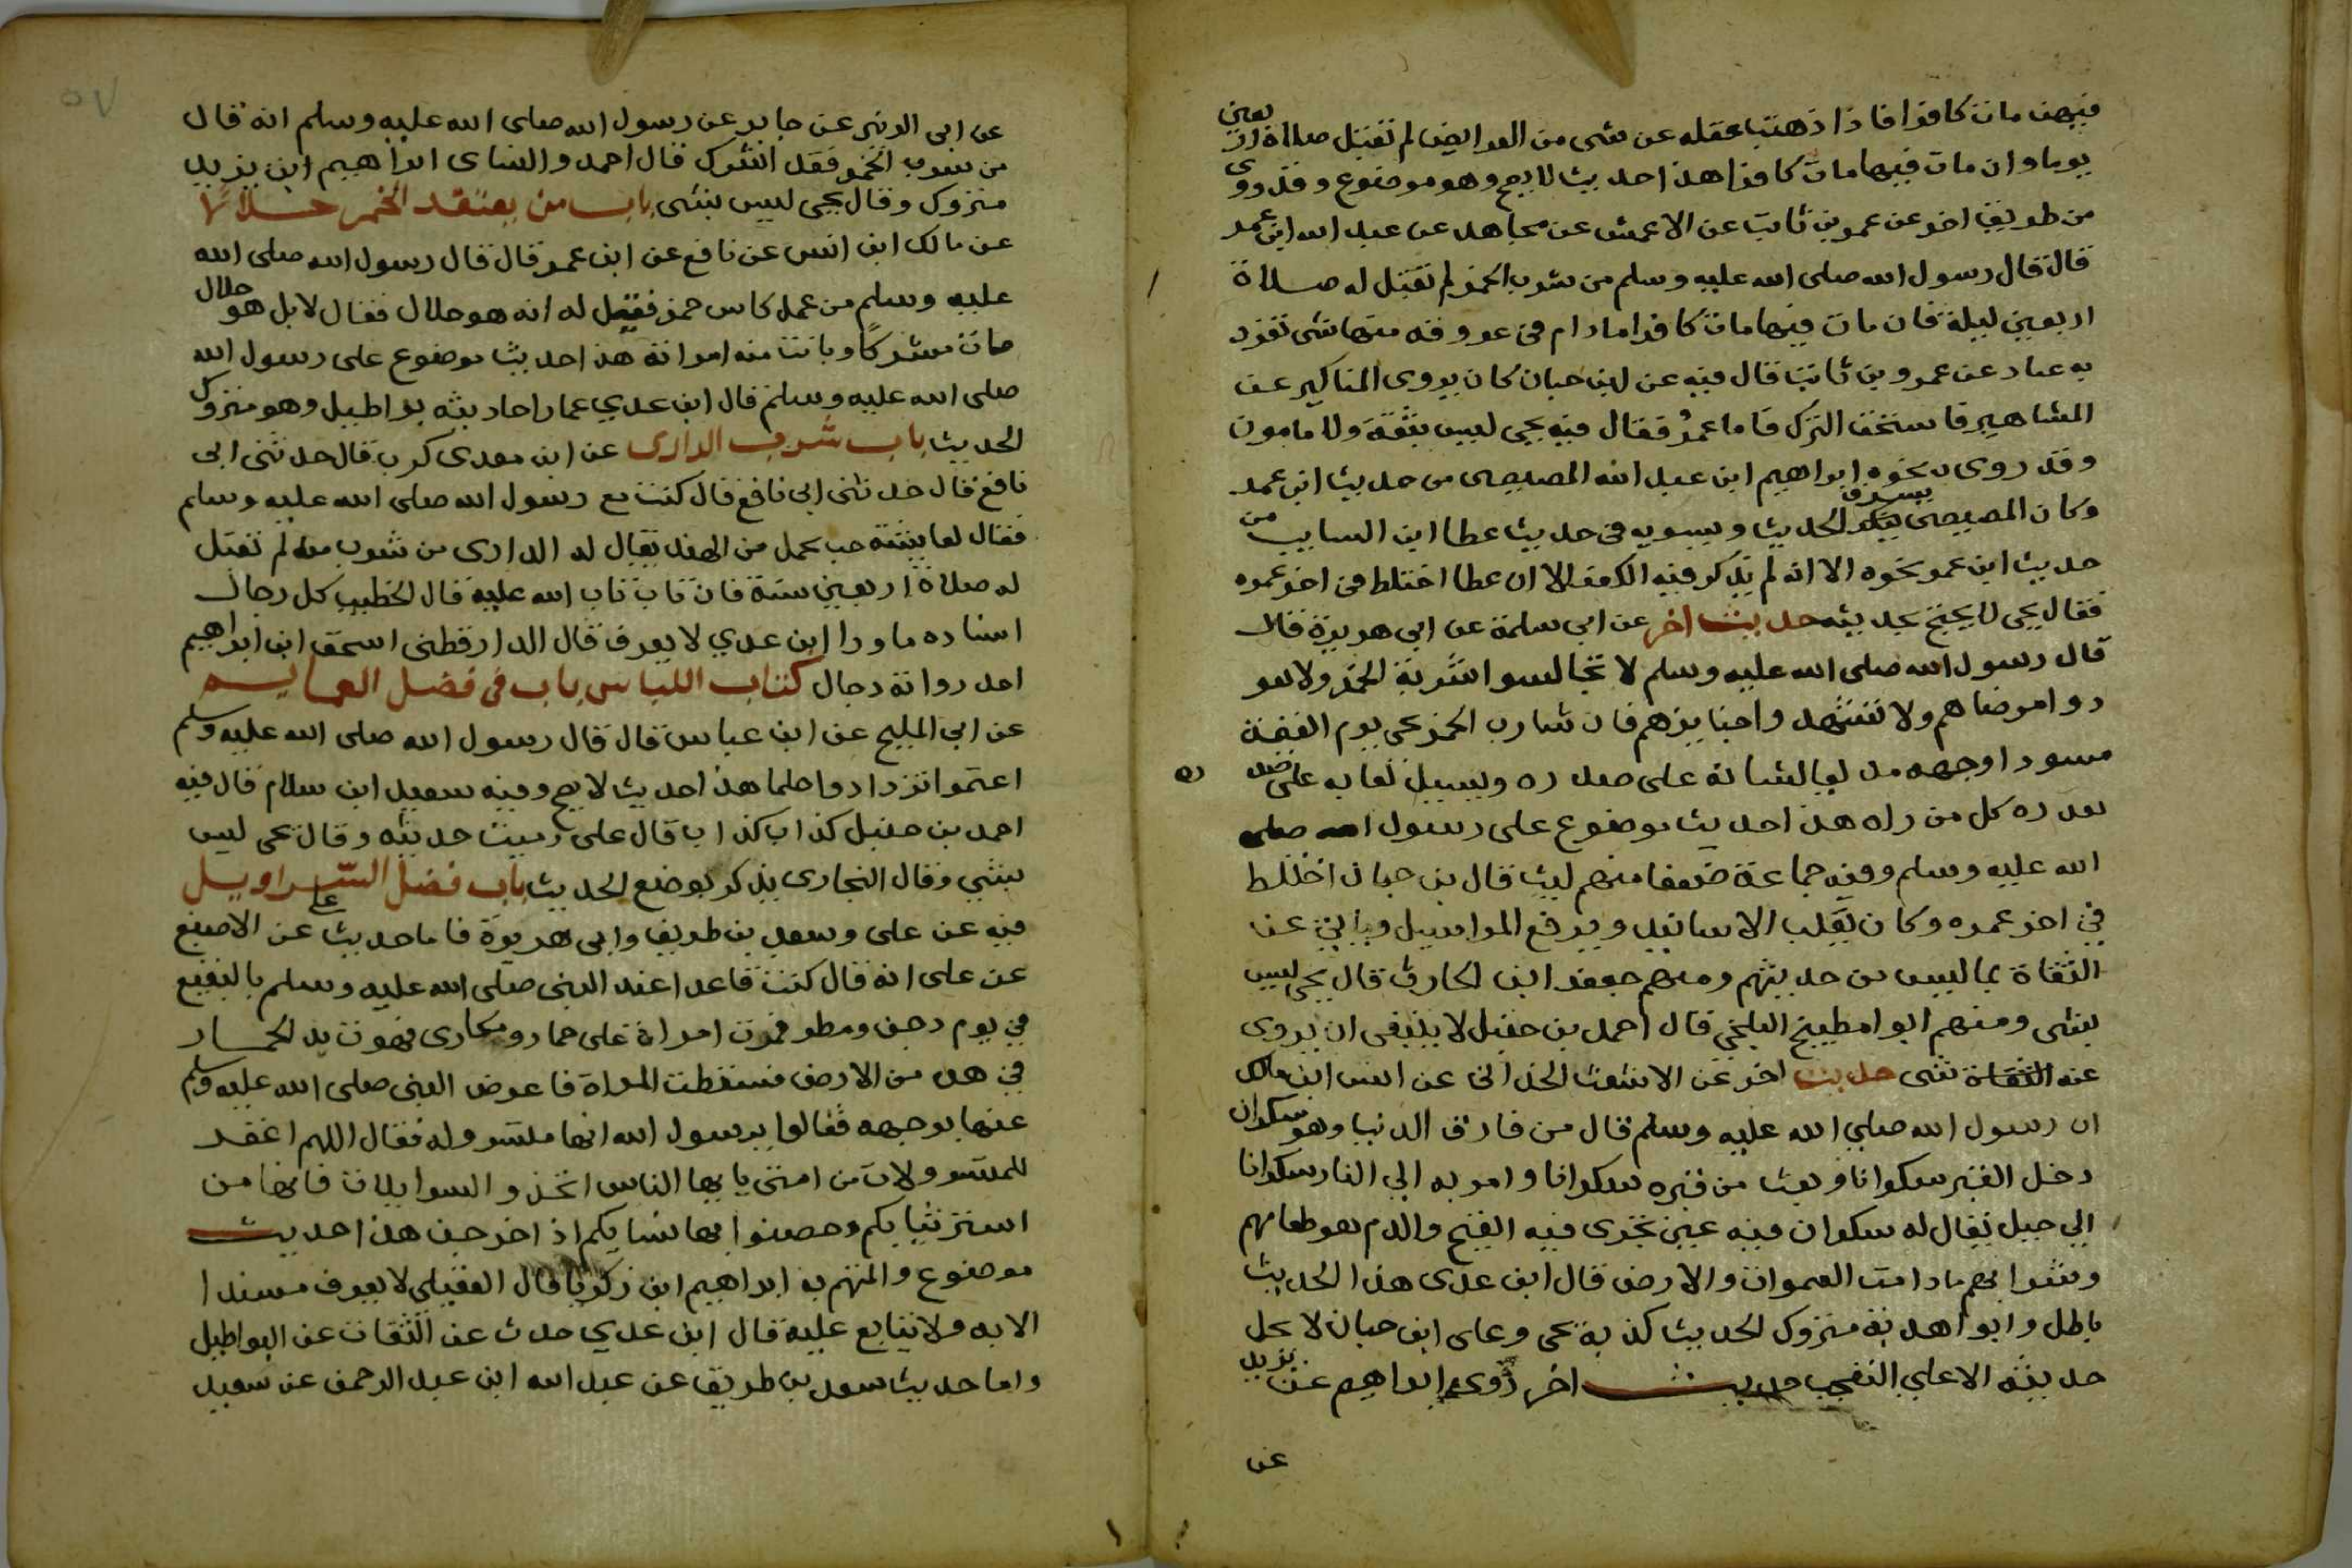 فيهن مات كافرا فاذا ذهبت بعقله عن شى من الفرايض لم تقبل صلاة اربعين
يوما وان مات فيها مات كافرا هذا حديث لا يصح وهو موضوع وقد روى
من طريق اخر عن عمرو بن ثابت عن الاعمش عن مجاهد عن عبد الله ابن عمر
قال قال رسول الله صلى الله عليه وسلم من شرب الخمر لم تقبل له صلاة
اربعين ليلة فان مات فيها مات كافرا مادام فى عروقه منها شى تفرد
به عباد عن عمرو بن ثابت قال فيه عن ابن حبان كان يروى المناكير عن
المشاهير فاستحق الترك فاما عمرو فقال فيه يحي ليس بثقة ولا مامون
وقد روى نحوه ابراهيم ابن عبد الله المصيصى من حديث ابن عمر
وكان المصيصى يسرق الحديث ويسويه فى حديث عطا ابن السايب من
حديث ابن عمر نحوه الا انه لم يذكر فيه الكفر الا ان عطا اختلط فى اخر عمره
فقال يحي لا يحتج بحديثه حديث اخر عن ابي سلمة عن ابي هريرة قال
قال رسول الله صلى الله عليه وسلم لا تجالسوا شربة الخمر ولا تعو
دوا مرضاهم ولا تشهد واجنايزهم فان شارب الخمر يجى يوم القيمة
مسودا وجهه مدلعا لسانه على صدره ويسيل لعابه على
صدره كل من راه هذا حديث موضوع على رسول الله صلى
الله عليه وسلم وفيه جماعة ضعفا منهم ليث قال بن حبان اختلط
في اخر عمره وكان يقلب الاسانيد ويرفع المراسيل وياتي عن
الثقاة بما ليس من حديثهم ومنهم جعفر ابن الحارث قال يحي ليس
بشى ومنهم ابو امطيع البلخي قال احمد بن حنبل لا ينبغى ان يروى
عنه شى حديث اخر عن الاشعث الحدانى عن انس ابن مالك
ان رسول الله صلي الله عليه وسلم قال من فارق الدنيا وهو سكران
دخل القبر سكرانا وبعث من قبره سكرانا وامر به الي النار سكرانا
الي جبل يقال له سكران فيه عين تجرى فيه القيح والدم هو طعامهم
وشرابهم مادامت السموات والارض قال ابن عدى هذا الحديث
باطل وابو اهدبة متروك الحديث كذبه يحى وعلى ابن حبان لا يحل
حديثه الا علي التعجب حديث اخر روى ابراهيم عن يزيد
عن
عن ابى الزبير عن جابر عن رسول الله صلى الله عليه وسلم انه قال
من شرب الخمر فقد اشرك قال احمد والنساى ابراهيم ابن يزيد
متروك وقال يحى ليس بشى باب من يعتقد الخمر حلالا
عن مالك ابن انس عن نافع عن ابن عمر قال قال رسول الله صلى الله
عليه وسلم من عمل كاس خمر فقيل له انه هو حلال فقال لا بل هو حلال
مات مشركا وبانت منه امراته هذا حديث موضوع على رسول الله
صلى الله عليه وسلم قال ابن عدي عمار احاديثه بواطيل وهو متروك
الحديث باب شرب الدارى عن ابن معدى كرب قال حدثنى ابى
نافع قال حدثنى ابى نافع قال كنت مع رسول الله صلى الله عليه وسلم
فقال لعايشة حب يحمل من الهند يقال له الدارى من شرب منه لم تقبل
له صلاة اربعين سنة فان تاب تاب الله عليه قال الخطيب كل رجال
اسناده ماورا ابن عدي لا يعرف قال الدارقطنى اسحق ابن ابراهيم
احد رواته دجال كتاب اللباس باب فى فضل العمايم
عن ابي المليح عن ابن عباس قال قال رسول الله صلى الله عليه وسلم
اعتموا تزدادوا حلما هذا حديث لا يصح وفيه سعيد ابن سلام قال فيه
احمد بن حنبل كذاب كذاب قال على رميت حديثه وقال يحى ليس
بشي وقال البخارى يذكر بوضع الحديث باب فضل السراويل
فيه عن على وسعد بن طريف وابى هريرة فاما حديث علي عن الاصبغ
عن على انه قال كنت قاعدا عند النبى صلى الله عليه وسلم بالبقيع
في يوم دجن ومطر فمرت امراة على حمار ومكارى فهوت يد الحمار
في هده من الارض فسقطت المراة فاعرض النبى صلى الله عليه وسلم
عنها بوجهه فقالوا يرسول الله انها متسروله فقال اللهم اغفر
للمتسرولات من امتى يا يها الناس اتخذوا السراويلات فانها من
استر ثيابكم وحصنوا بها نسايكم اذا خرجن هذا حديث
موضوع والمتهم به ابراهيم ابن زكريا قال العقيلى لا يعرف مسندا
الا به ولا يتابع عليه قال ابن عدي حدث عن الثقات عن البواطيل
واما حديث سعد بن طريق عن عبد الله ابن عبد الرحمن عن سعيد